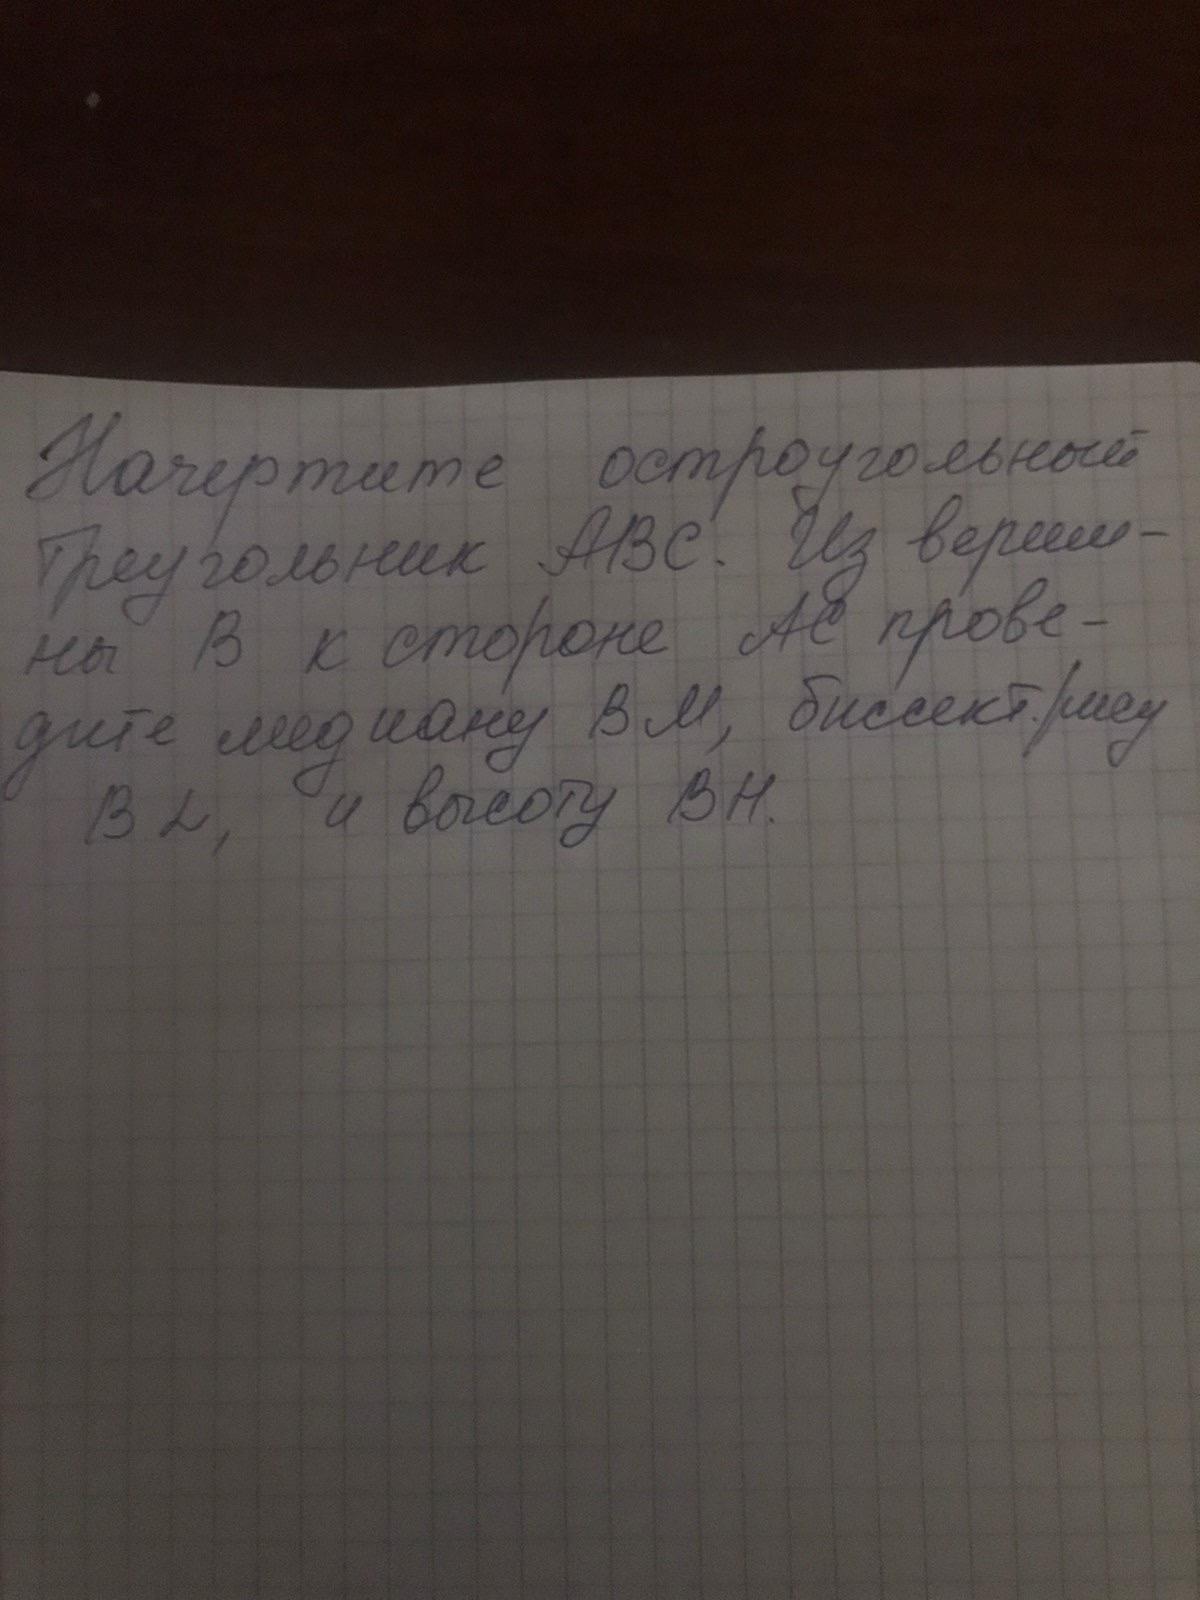 Начертите остроугольный
треугольник АВС. Из верши-
ны В к стороне АС прове-
дите медиану ВМ, биссектрису
ВL, и высоту ВН.